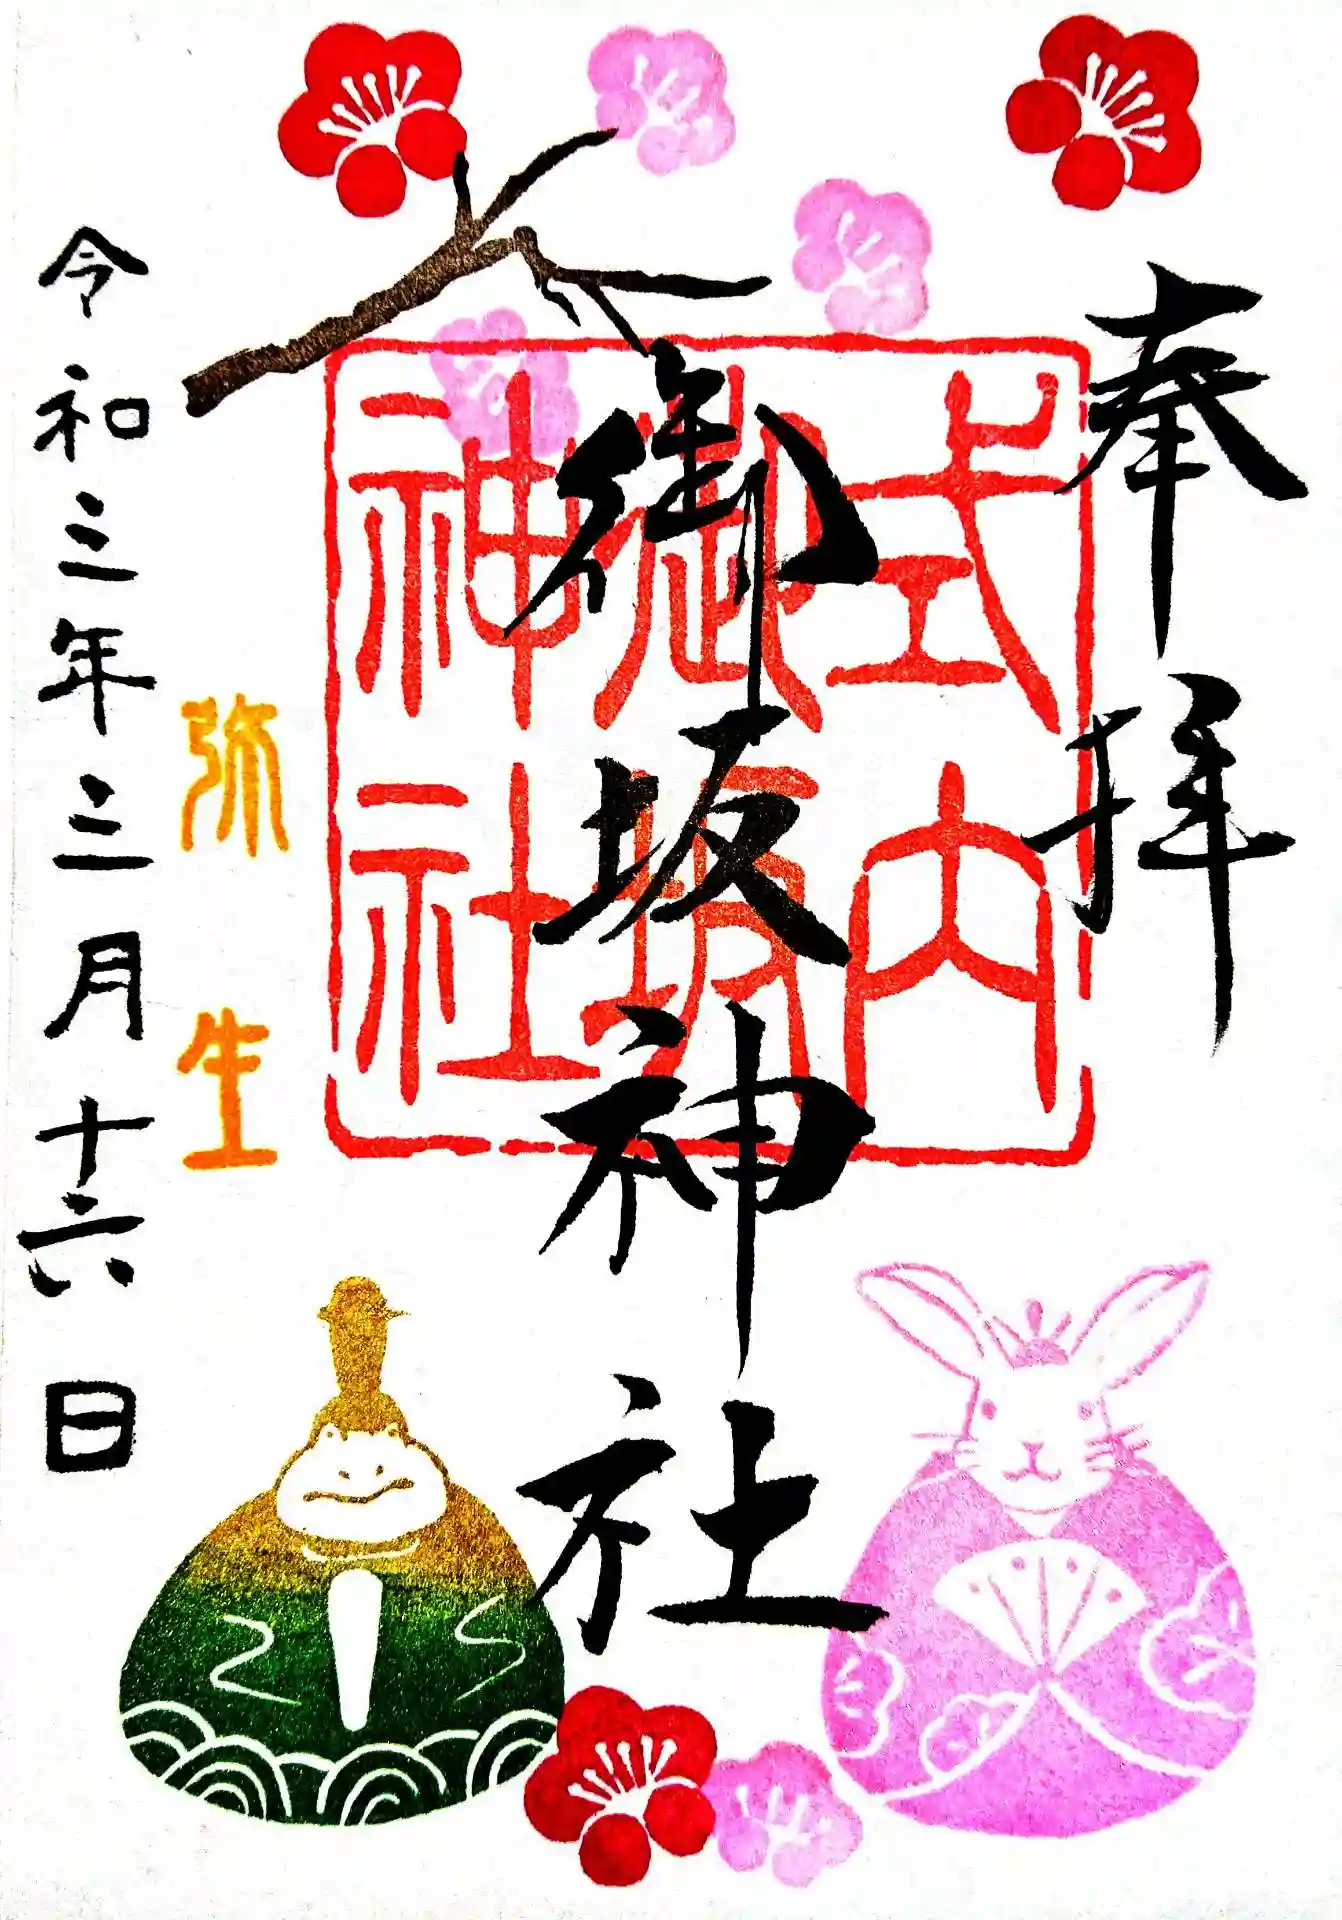 奉拝
式内
御坂
神社
御坂神社
弥生
令和三年三月十六日